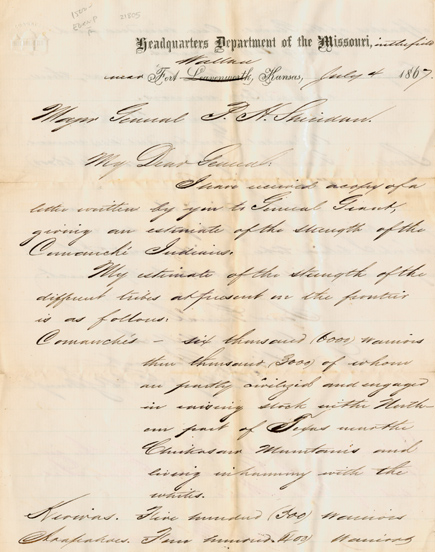 Headquarters Department of the Missouri, in the field
Wallace
near Fort Leavenworth, Kansas, July 4 1867.
Major General P. H. Sheridan.
My Dear General.
I have received a copy of a
letter written by you to General Grant,
giving an estimate of the strength of the
Comanche Indians.
My estimate of the strength of the
different tribes at present on the frontier
is as follows:
Comanches — six thousand (6000) warriors
three thousand (3000) of whom
are partly civilized and engaged
in raising stock in the North-
ern part of Texas near the
Chickasaw Mountains and
living in harmony with the
whites.
Kiowas. Five hundred (500) warriors
Arrapahoes. Four hundred (400) warriors